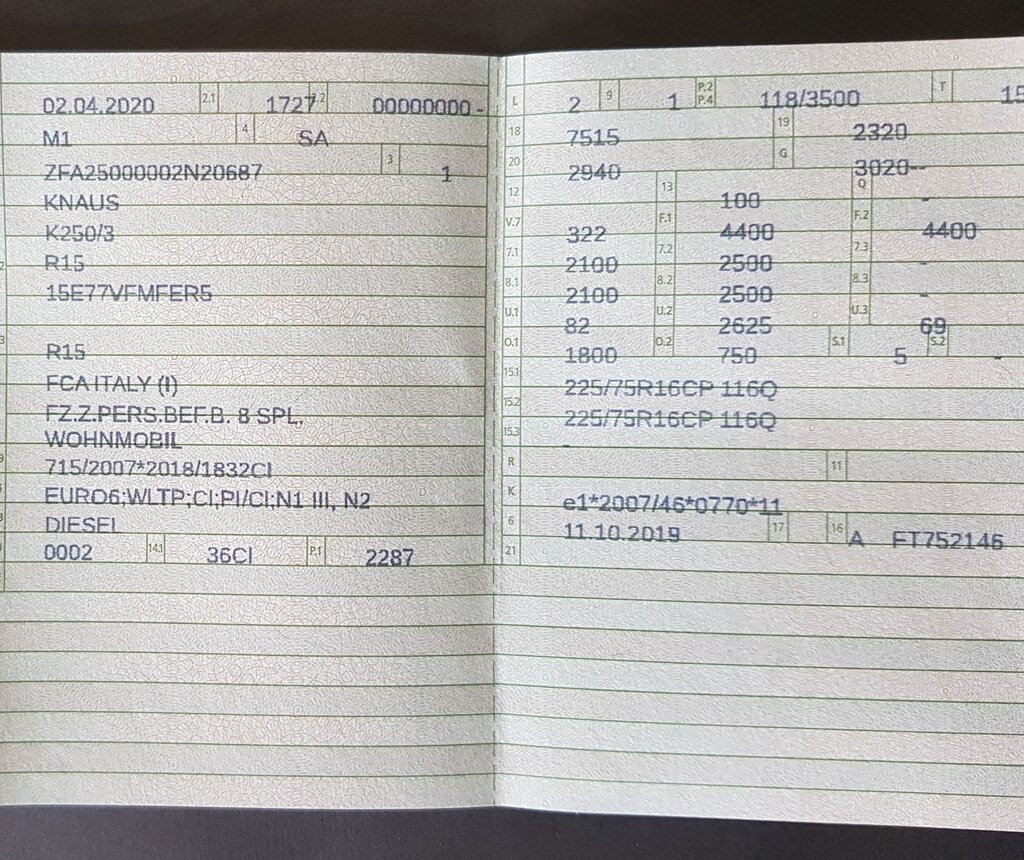 02.04.2020 2.1 1727 2.2 00000000 -
M1 4 SA
ZFA25000002N20687 3 1
KNAUS
K250/3
R15
15E77VFMFER5
R15
FCA ITALY (I)
FZ.Z.PERS.BEF.B. 8 SPL,
WOHNMOBIL
715/2007*2018/1832CI
EURO6;WLTP;CI;PI/CI;N1 III, N2
DIESEL
0002 14.1 36CI P.1 2287
L 2 9 1 P.2 P.4 118/3500 T 15
18 7515 19 2320
20 2940 G 3020--
12 13 100 Q -
V.7 322 F.1 4400 F.2 4400
7.1 2100 7.2 2500 7.3 -
8.1 2100 8.2 2500 8.3 -
U.1 82 U.2 2625 U.3 69
O.1 1800 O.2 750 S.1 5 S.2 -
15.1 225/75R16CP 116Q
15.2 225/75R16CP 116Q
15.3 -
R 11
K e1*2007/46*0770*11
6 11.10.2019 17 16 A FT752146
21